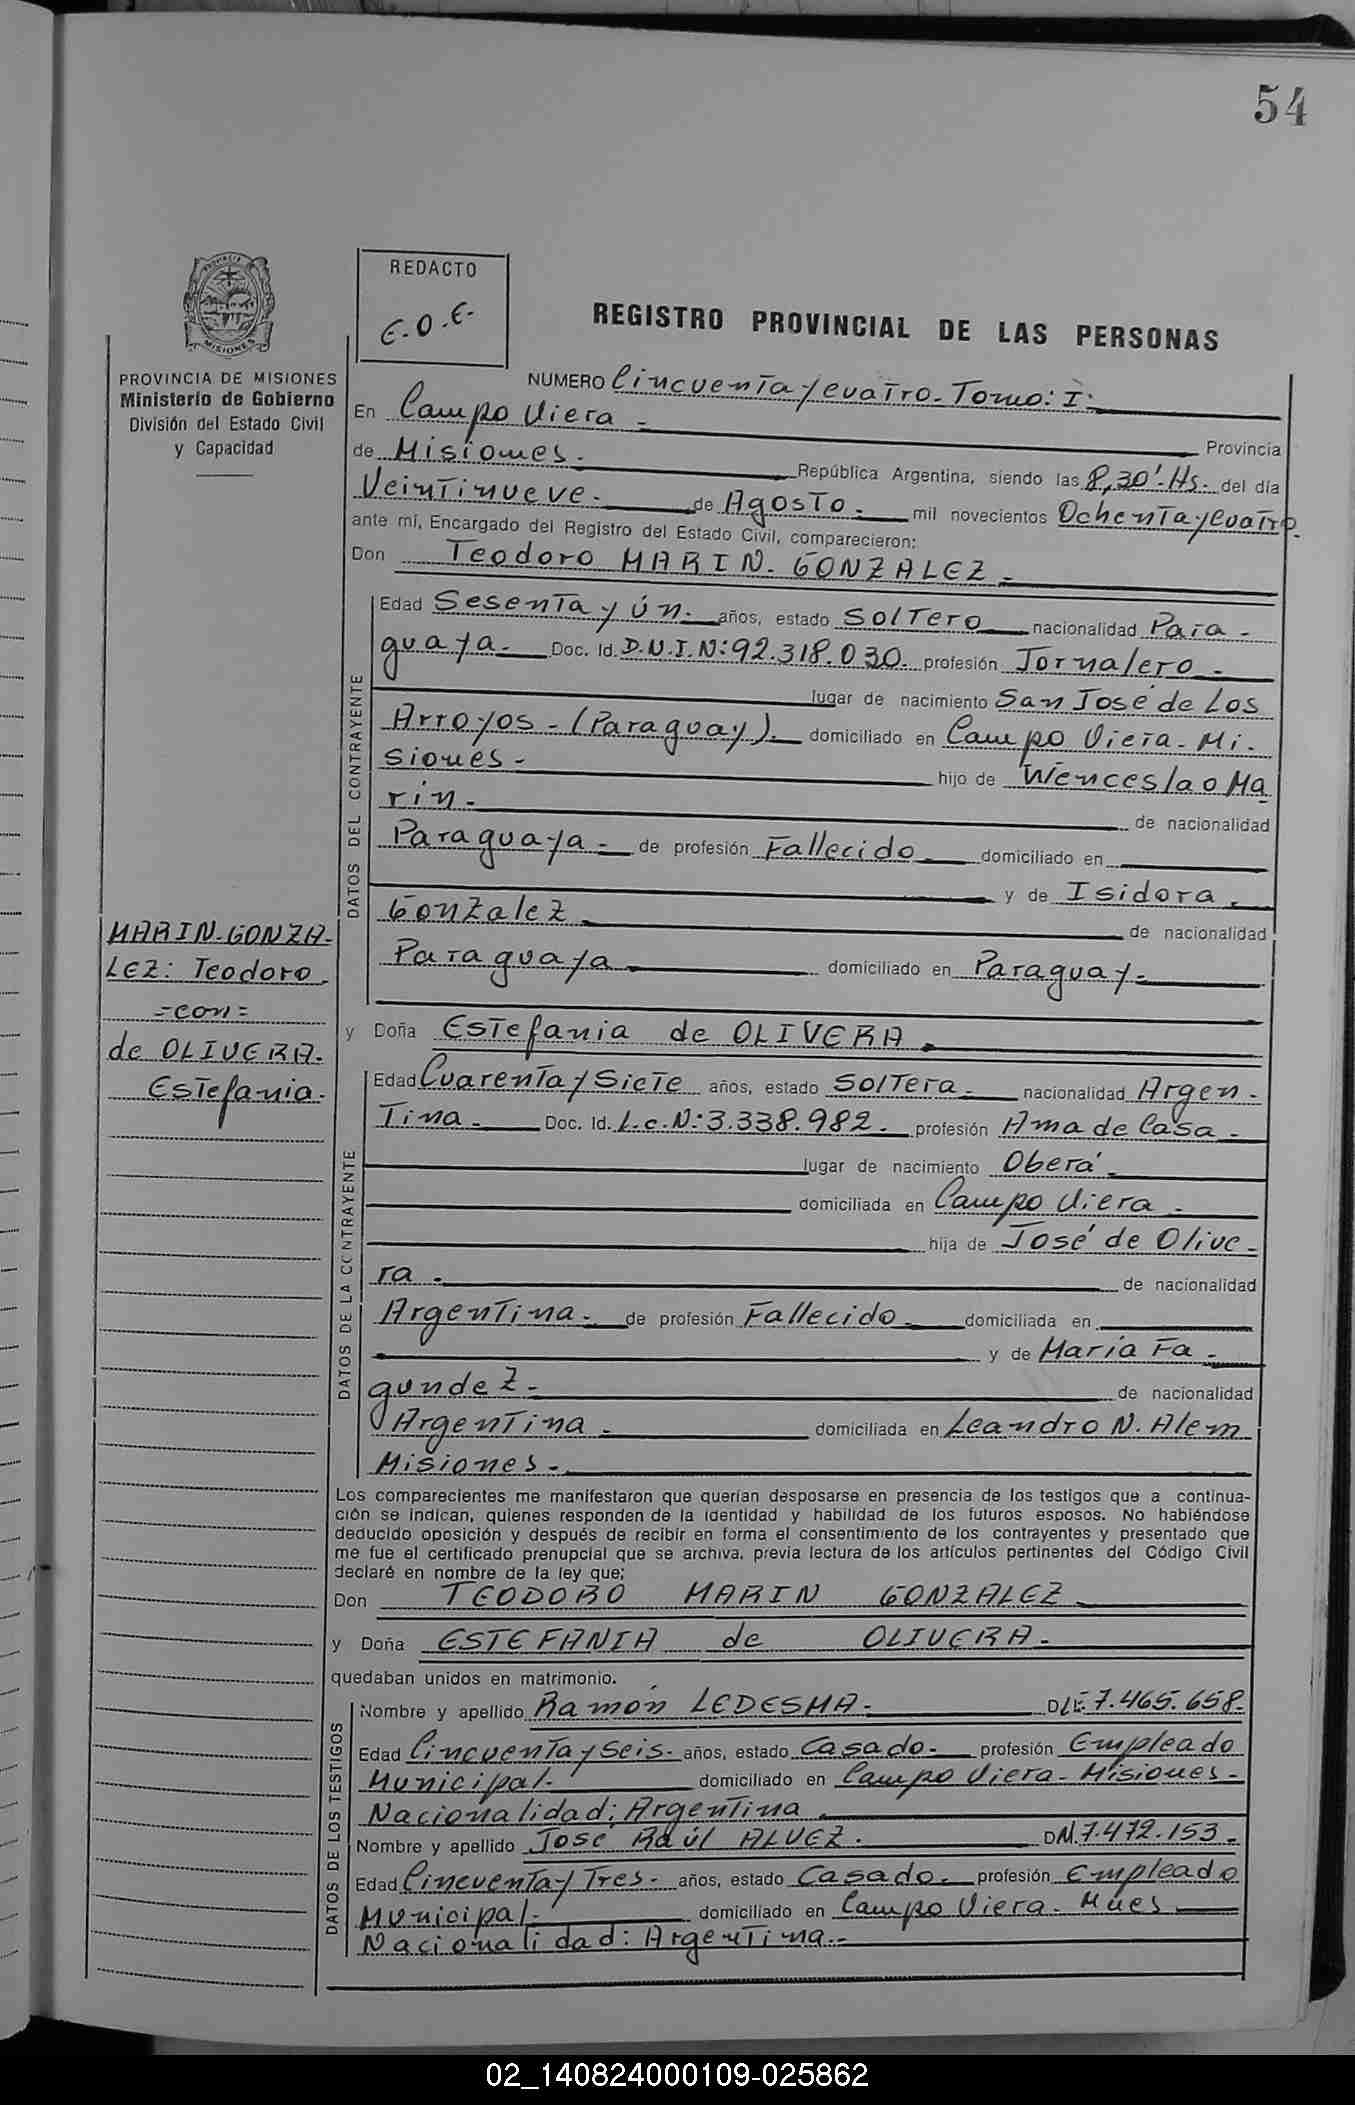 54
REDACTO
E.O.E.
REGISTRO PROVINCIAL DE LAS PERSONAS
PROVINCIA DE MISIONES
Ministerio de Gobierno
División del Estado Civil
y Capacidad
NUMERO Cincuenta y cuatro. Tomo: I.
En Campo Viera - Provincia
de Misiones. República Argentina, siendo las 8,30' Hs. del día
Veintinueve. de Agosto. mil novecientos Ochenta y cuatro.
ante mí, Encargado del Registro del Estado Civil, comparecieron:
Don Teodoro MARIN. GONZALEZ -
DATOS DEL CONTRAYENTE
Edad Sesenta y ún. años, estado Soltero nacionalidad Para-
guaya. Doc. Id. D.N.I. N: 92.318.030. profesión Jornalero -
lugar de nacimiento San José de Los
Arroyos - (Paraguay). domiciliado en Campo Viera - Mi-
siones - hijo de Wenceslao Ma
rin. de nacionalidad
Paraguaya - de profesión Fallecido domiciliado en
y de Isidora.
Gonzalez de nacionalidad
Paraguaya domiciliado en Paraguay -
MARIN-GONZA-
LEZ: Teodoro
= con =
de OLIVERA.
Estefania.
y Doña Estefania de OLIVERA.
DATOS DE LA CONTRAYENTE
Edad Cuarenta y Siete años, estado Soltera nacionalidad Argen-
Tina. Doc. Id. L.C. N: 3.338.982. profesión Ama de Casa -
lugar de nacimiento Oberá -
domiciliada en Campo Viera -
hija de José de Olive-
ra. de nacionalidad
Argentina. de profesión Fallecido. domiciliada en
y de María Fa-
gundez - de nacionalidad
Argentina. domiciliada en Leandro N. Alem
Misiones -
Los comparecientes me manifestaron que querían desposarse en presencia de los testigos que a continua-
ción se indican, quienes responden de la identidad y habilidad de los futuros esposos. No habiéndose
deducido oposición y después de recibir en forma el consentimiento de los contrayentes y presentado que
me fue el certificado prenupcial que se archiva, previa lectura de los artículos pertinentes del Código Civil
declaré en nombre de la ley que;
Don TEODORO MARIN GONZALEZ
y Doña ESTEFANIA de OLIVERA.
quedaban unidos en matrimonio.
DATOS DE LOS TESTIGOS
Nombre y apellido Ramón LEDESMA. D L.E. 7.465.658.
Edad Cincuenta y Seis. años, estado Casado. profesión Empleado
Municipal. domiciliado en Campo Viera - Misiones -
Nacionalidad: Argentina.
Nombre y apellido José Raúl ALVEZ. DNI. 7.472.153.
Edad Cincuenta y Tres. años, estado Casado. profesión Empleado
Municipal. domiciliado en Campo Viera - Mnes
Nacionalidad: Argentina.-
02_140824000109-025862